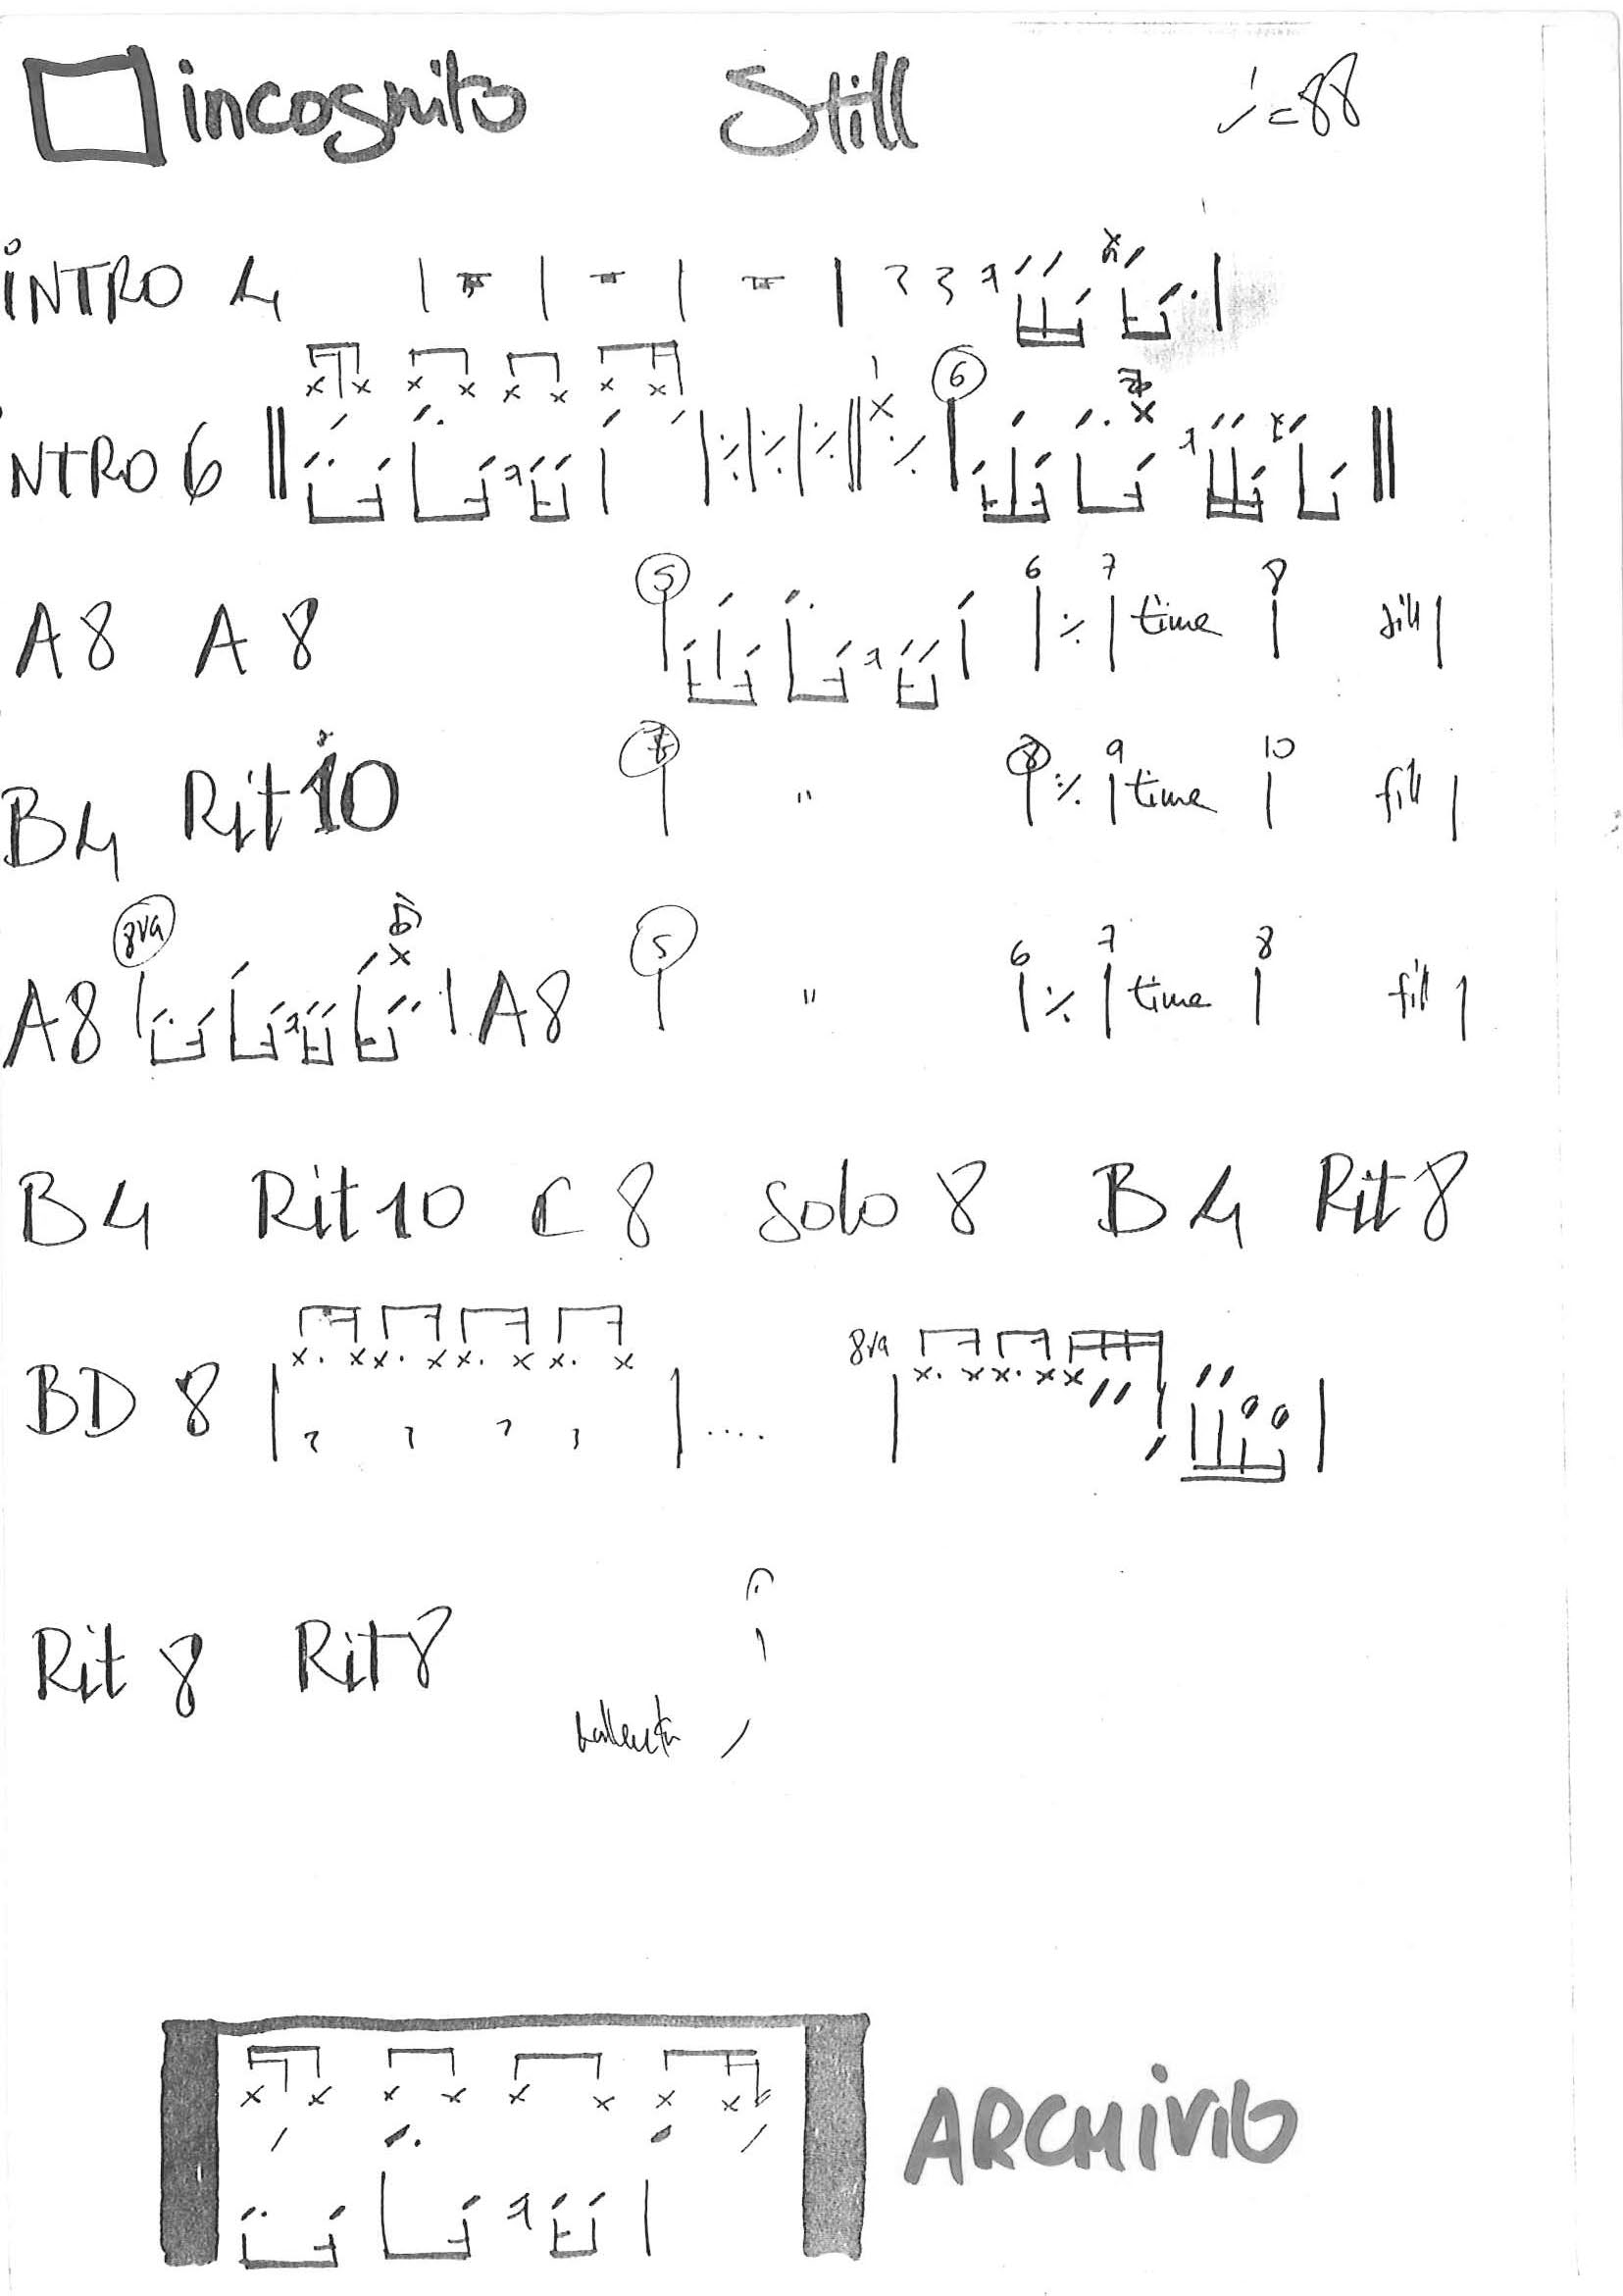 incognito Still ♩=88
INTRO 4
INTRO 6 6
A8 A8 5 6 7 time 8 fill
B4 Rit 10 7 " 8 9 time 10 fill
A8 8va A8 5 " 6 7 time 8 fill
B4 Rit 10 C 8 Solo 8 B4 Rit 8
BD 8 .... 8va
Rit 8 Rit 8
ARCHIVIO